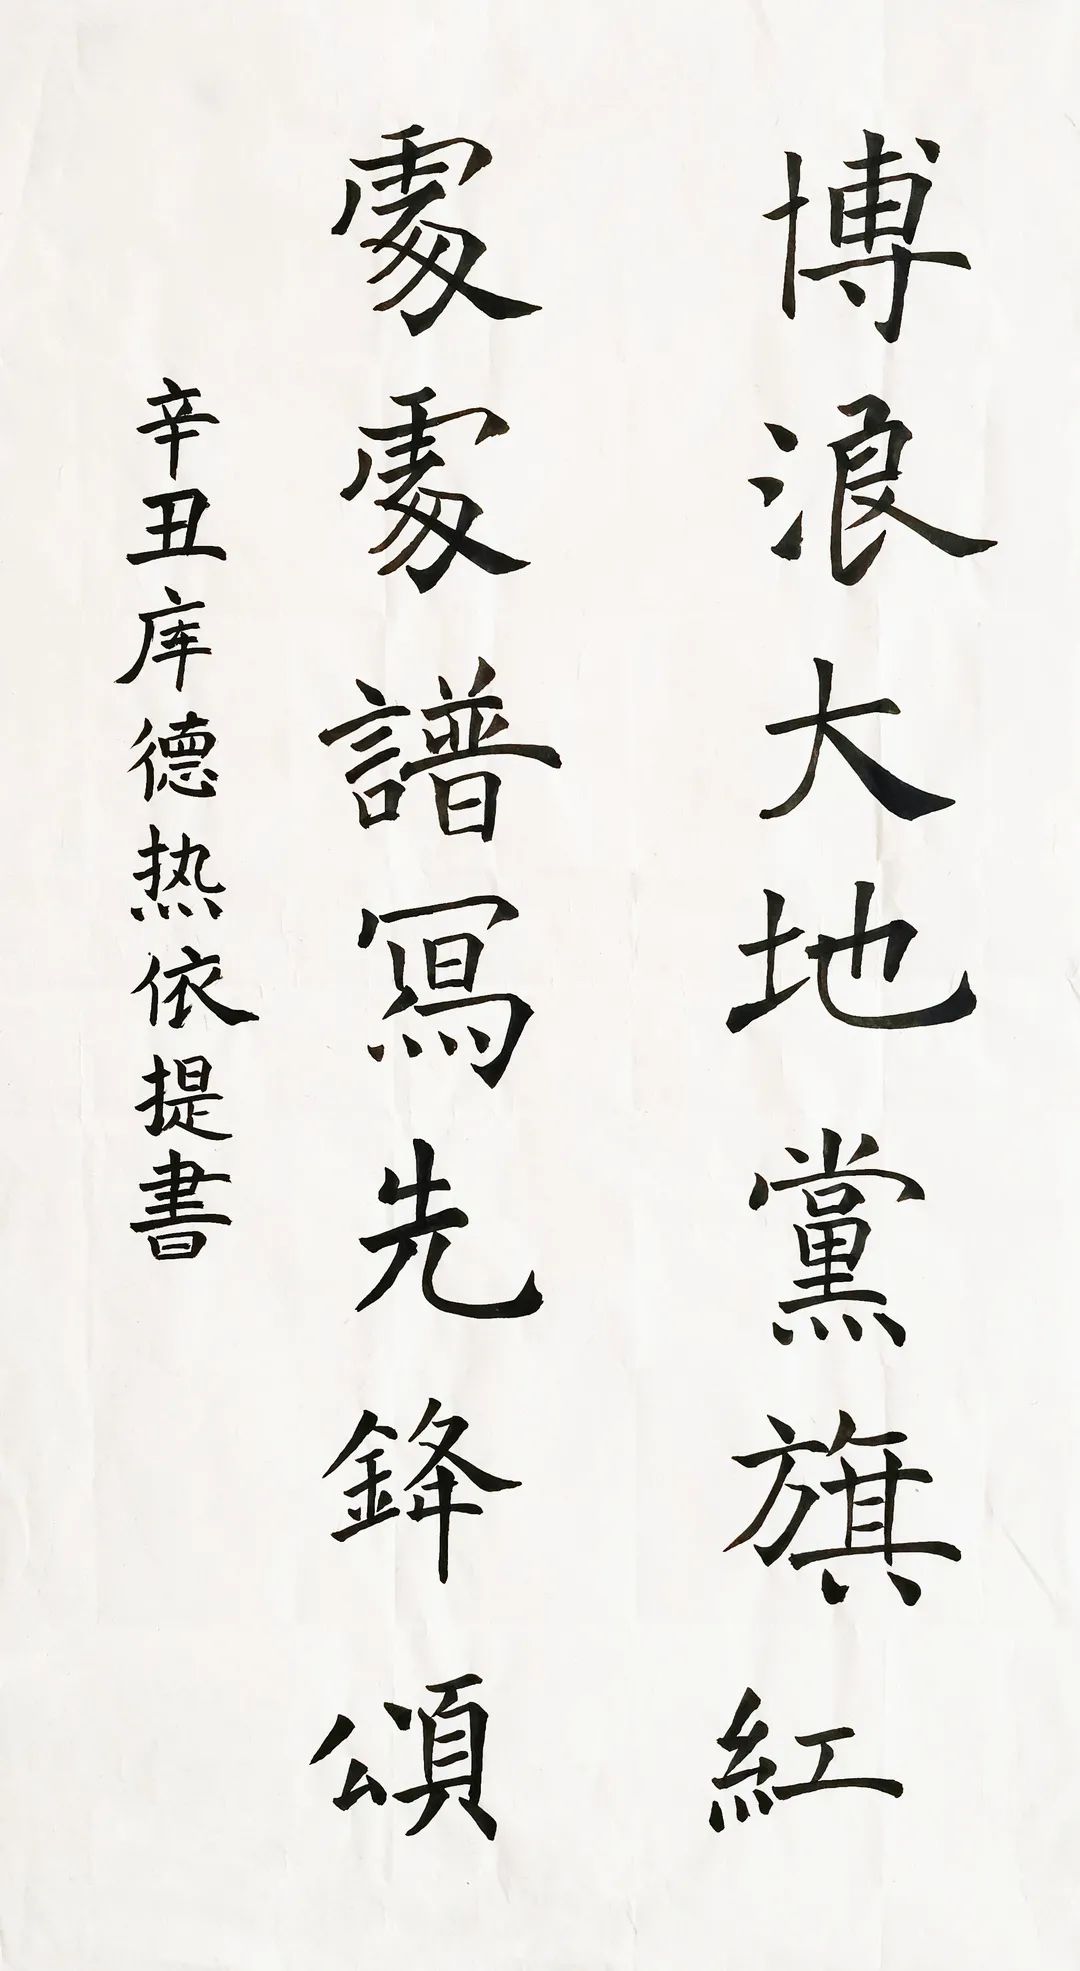 博浪大地黨旗紅
處處譜寫先鋒頌
辛丑库德热依提書